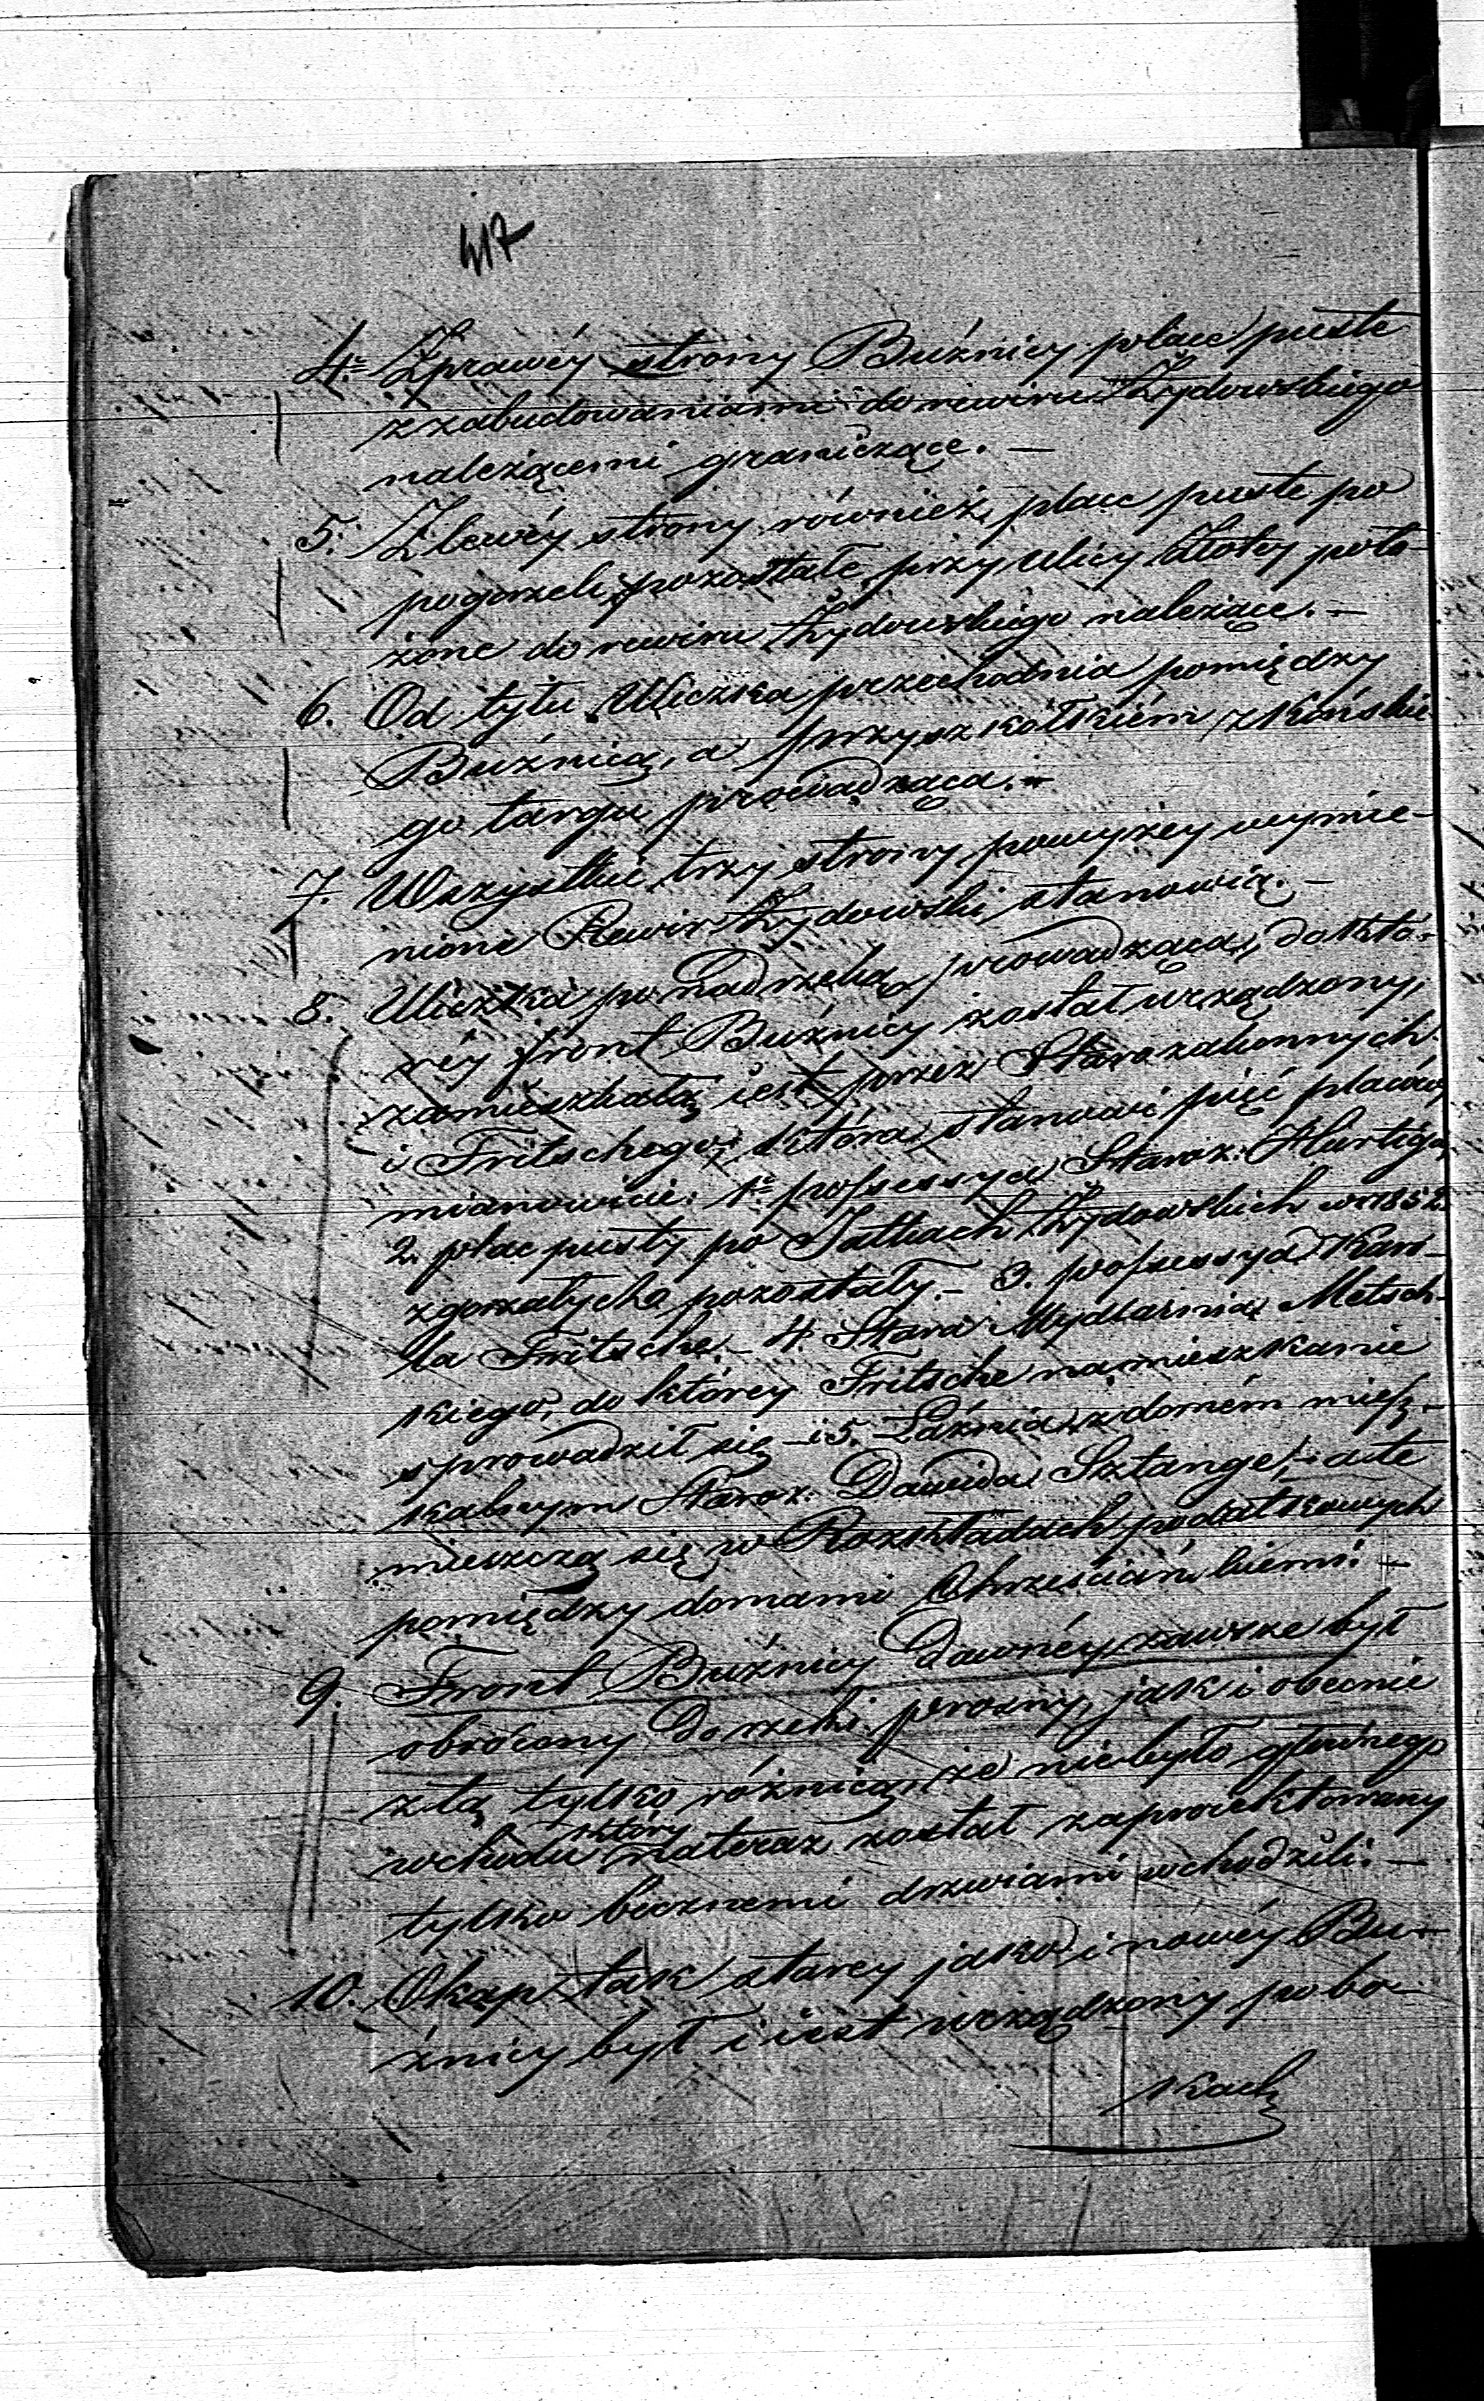 417
4º Z prawéy strony Buźnicy place puste
z zabudowaniami do rewiru Żydowskiego
należącemi graniczące. —
5. Z lewéy strony również place puste po
pogorzeli pozostałe przy ulicy położone
żone do rewiru Żydowskiego należące. —
6. Od tyłu Uliczka przechodnia pomiędzy
Buźnicą, a przyszkółkiém z Końskie-
go targu prowadząca. —
7. Wszystkie trzy strony powyżey wymie-
nione Rewir Żydowski stanowią. —
8. Uliczka ponad rzeką prowadząca, do któ-
réy front Buźnicy został urządzony,
zamieszkałą iest przez Starozakonnych
i Fritschego, która stanowi pięć placów,
mianowicie: 1º possessya Staroz. Hurtiga,
2. plac pusty po Jatkach Żydowskich w r 1852
zgorzałych pozostały. – 3. possessya Karo-
la Fritsche – 4. Stara Mydlarnia Metsch-
kiego, do którey Fritsche na mieszkanie
sprowadził się – i 5. Łaźnia z domém miesz-
kalnym Staroz. Dawida Sztange, – a te
mieszczą się w Rozkładach podatkowych
pomiędzy domami Chrześciańskiemi. –
9. Front Buźnicy Dawnéy zawsze był
obrócony Do rzeki Prosny, jak i obecnie
z tą tylko różnicą, że niebyło głównego
który
wchodu na teraz został zaproiektowany
tylko bocznemi drzwiami wchodzili. —
10. Okap tak starey jako i nowéy Bu-
źnicy był i iest urządzony po bo-
kach